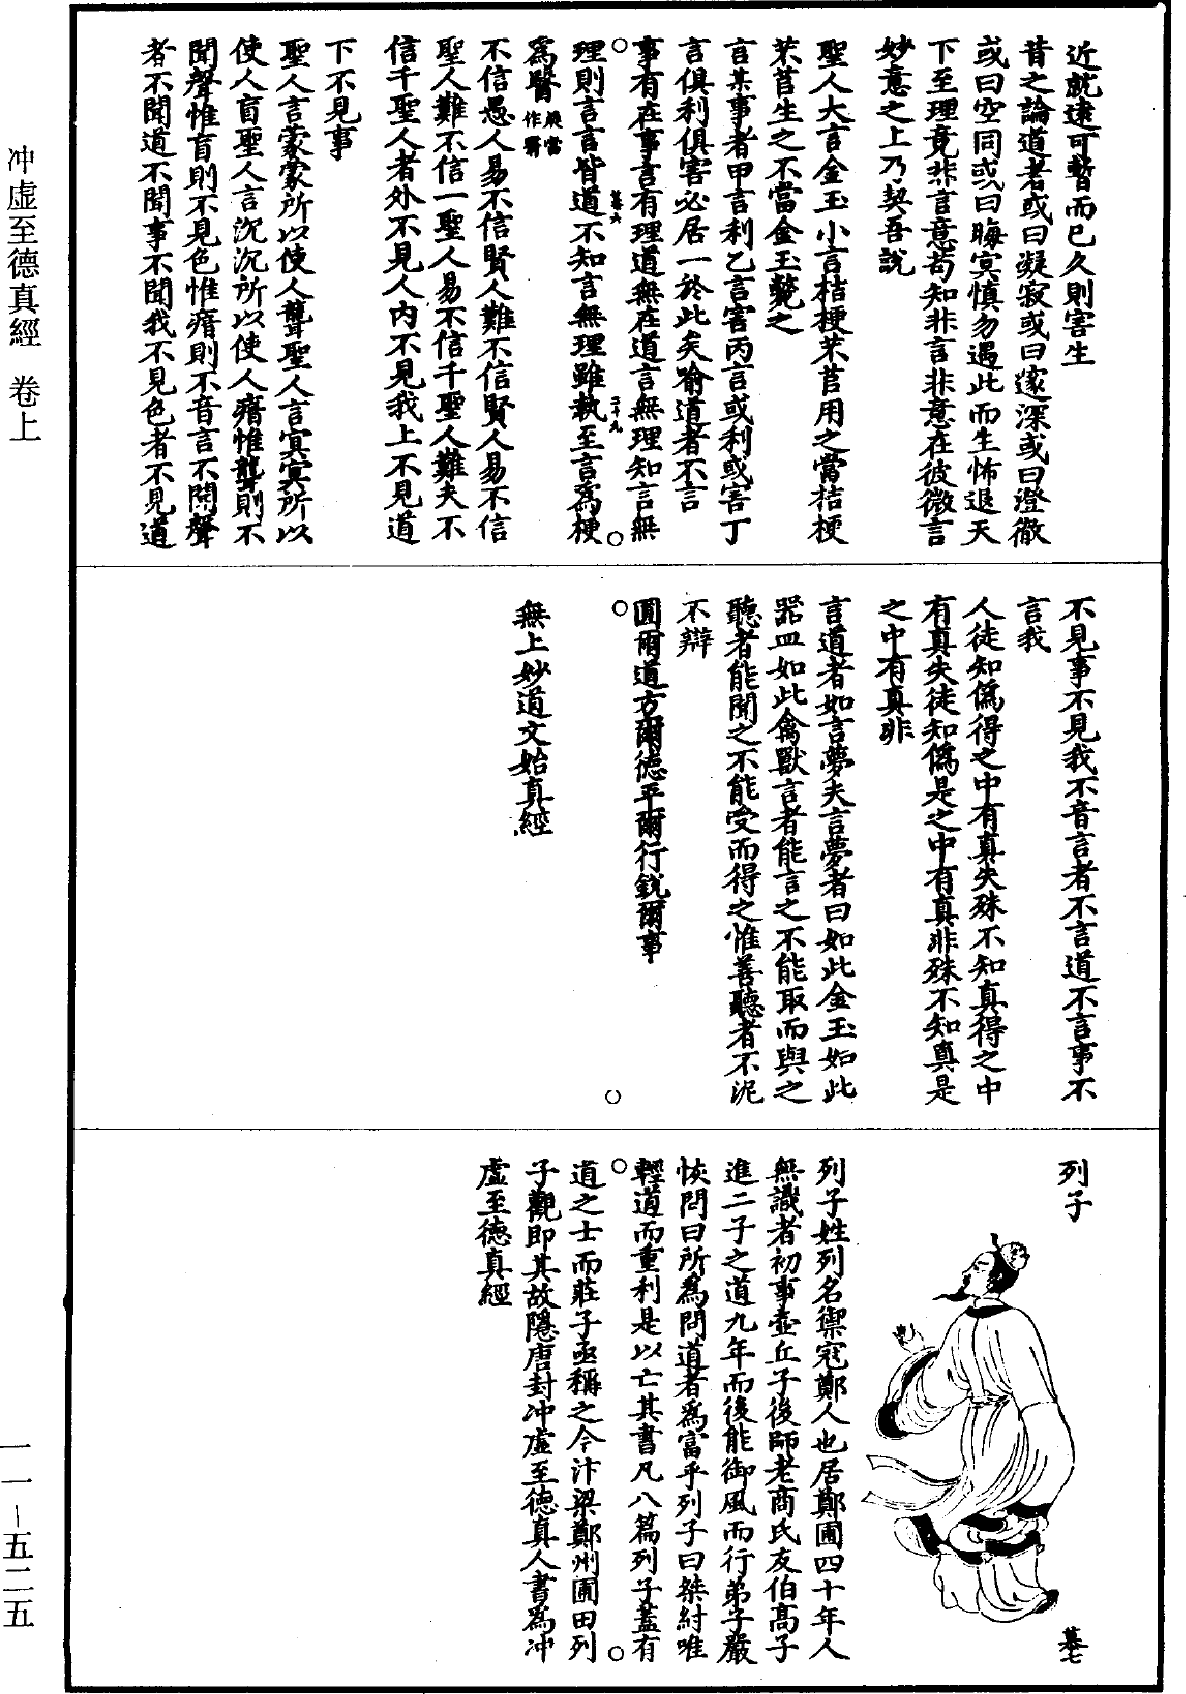 近就遠可暫而已久則害生
昔之論道者或曰凝寂或曰邃深或曰澄徹
或曰空同或曰晦冥慎勿遇此而生怖退天
下至理竟非言意苟知非言非意在彼微言
妙意之上乃契吾說
聖人大言金玉小言桔梗芣苢用之當桔梗
芣苢生之不當金玉斃之
言某事者甲言利乙言害丙言或利或害丁
言俱利俱害必居一於此矣喻道者不言
事有在事言有理道無在道言無理知言無
理則言言皆道不知言無理雖執至言為梗
為醫 疑當作翳
不信愚人易不信賢人難不信賢人易不信
聖人難不信一聖人易不信千聖人難夫不
信千聖人者外不見人內不見我上不見道
下不見事
聖人言蒙蒙所以使人聾聖人言冥冥所以
使人盲聖人言沉沉所以使人瘖惟聾則不
聞聲惟盲則不見色惟瘖則不音言不聞聲
者不聞道不聞事不聞我不見色者不見道
不見事不見我不音言者不言道不言事不
言我
人徒知偽得之中有真失殊不知真得之中
有真失徒知偽是之中有真非殊不知真是
之中有真非
言道者如言夢夫言夢者曰如此金玉如此
器皿如此禽獸言者能言之不能取而與之
聽者能聞之不能受而得之惟善聽者不泥
不辯
圓爾道方爾德平爾行銳爾事
無上妙道文始真經
列子
列子姓列名禦寇鄭人也居鄭圃四十年人
無識者初事壺丘子後師老商氏友伯高子
進二子之道九年而後能御風而行弟子嚴
恢問曰所為問道者為富乎列子曰桀紂唯
輕道而重利是以亡其書凡八篇列子蓋有
道之士而莊子亟稱之今汴梁鄭州圃田列
子觀即其故隱唐封冲虛至德真人書為冲
虛至德真經
冲虛至德真經 卷上
一一－五二五